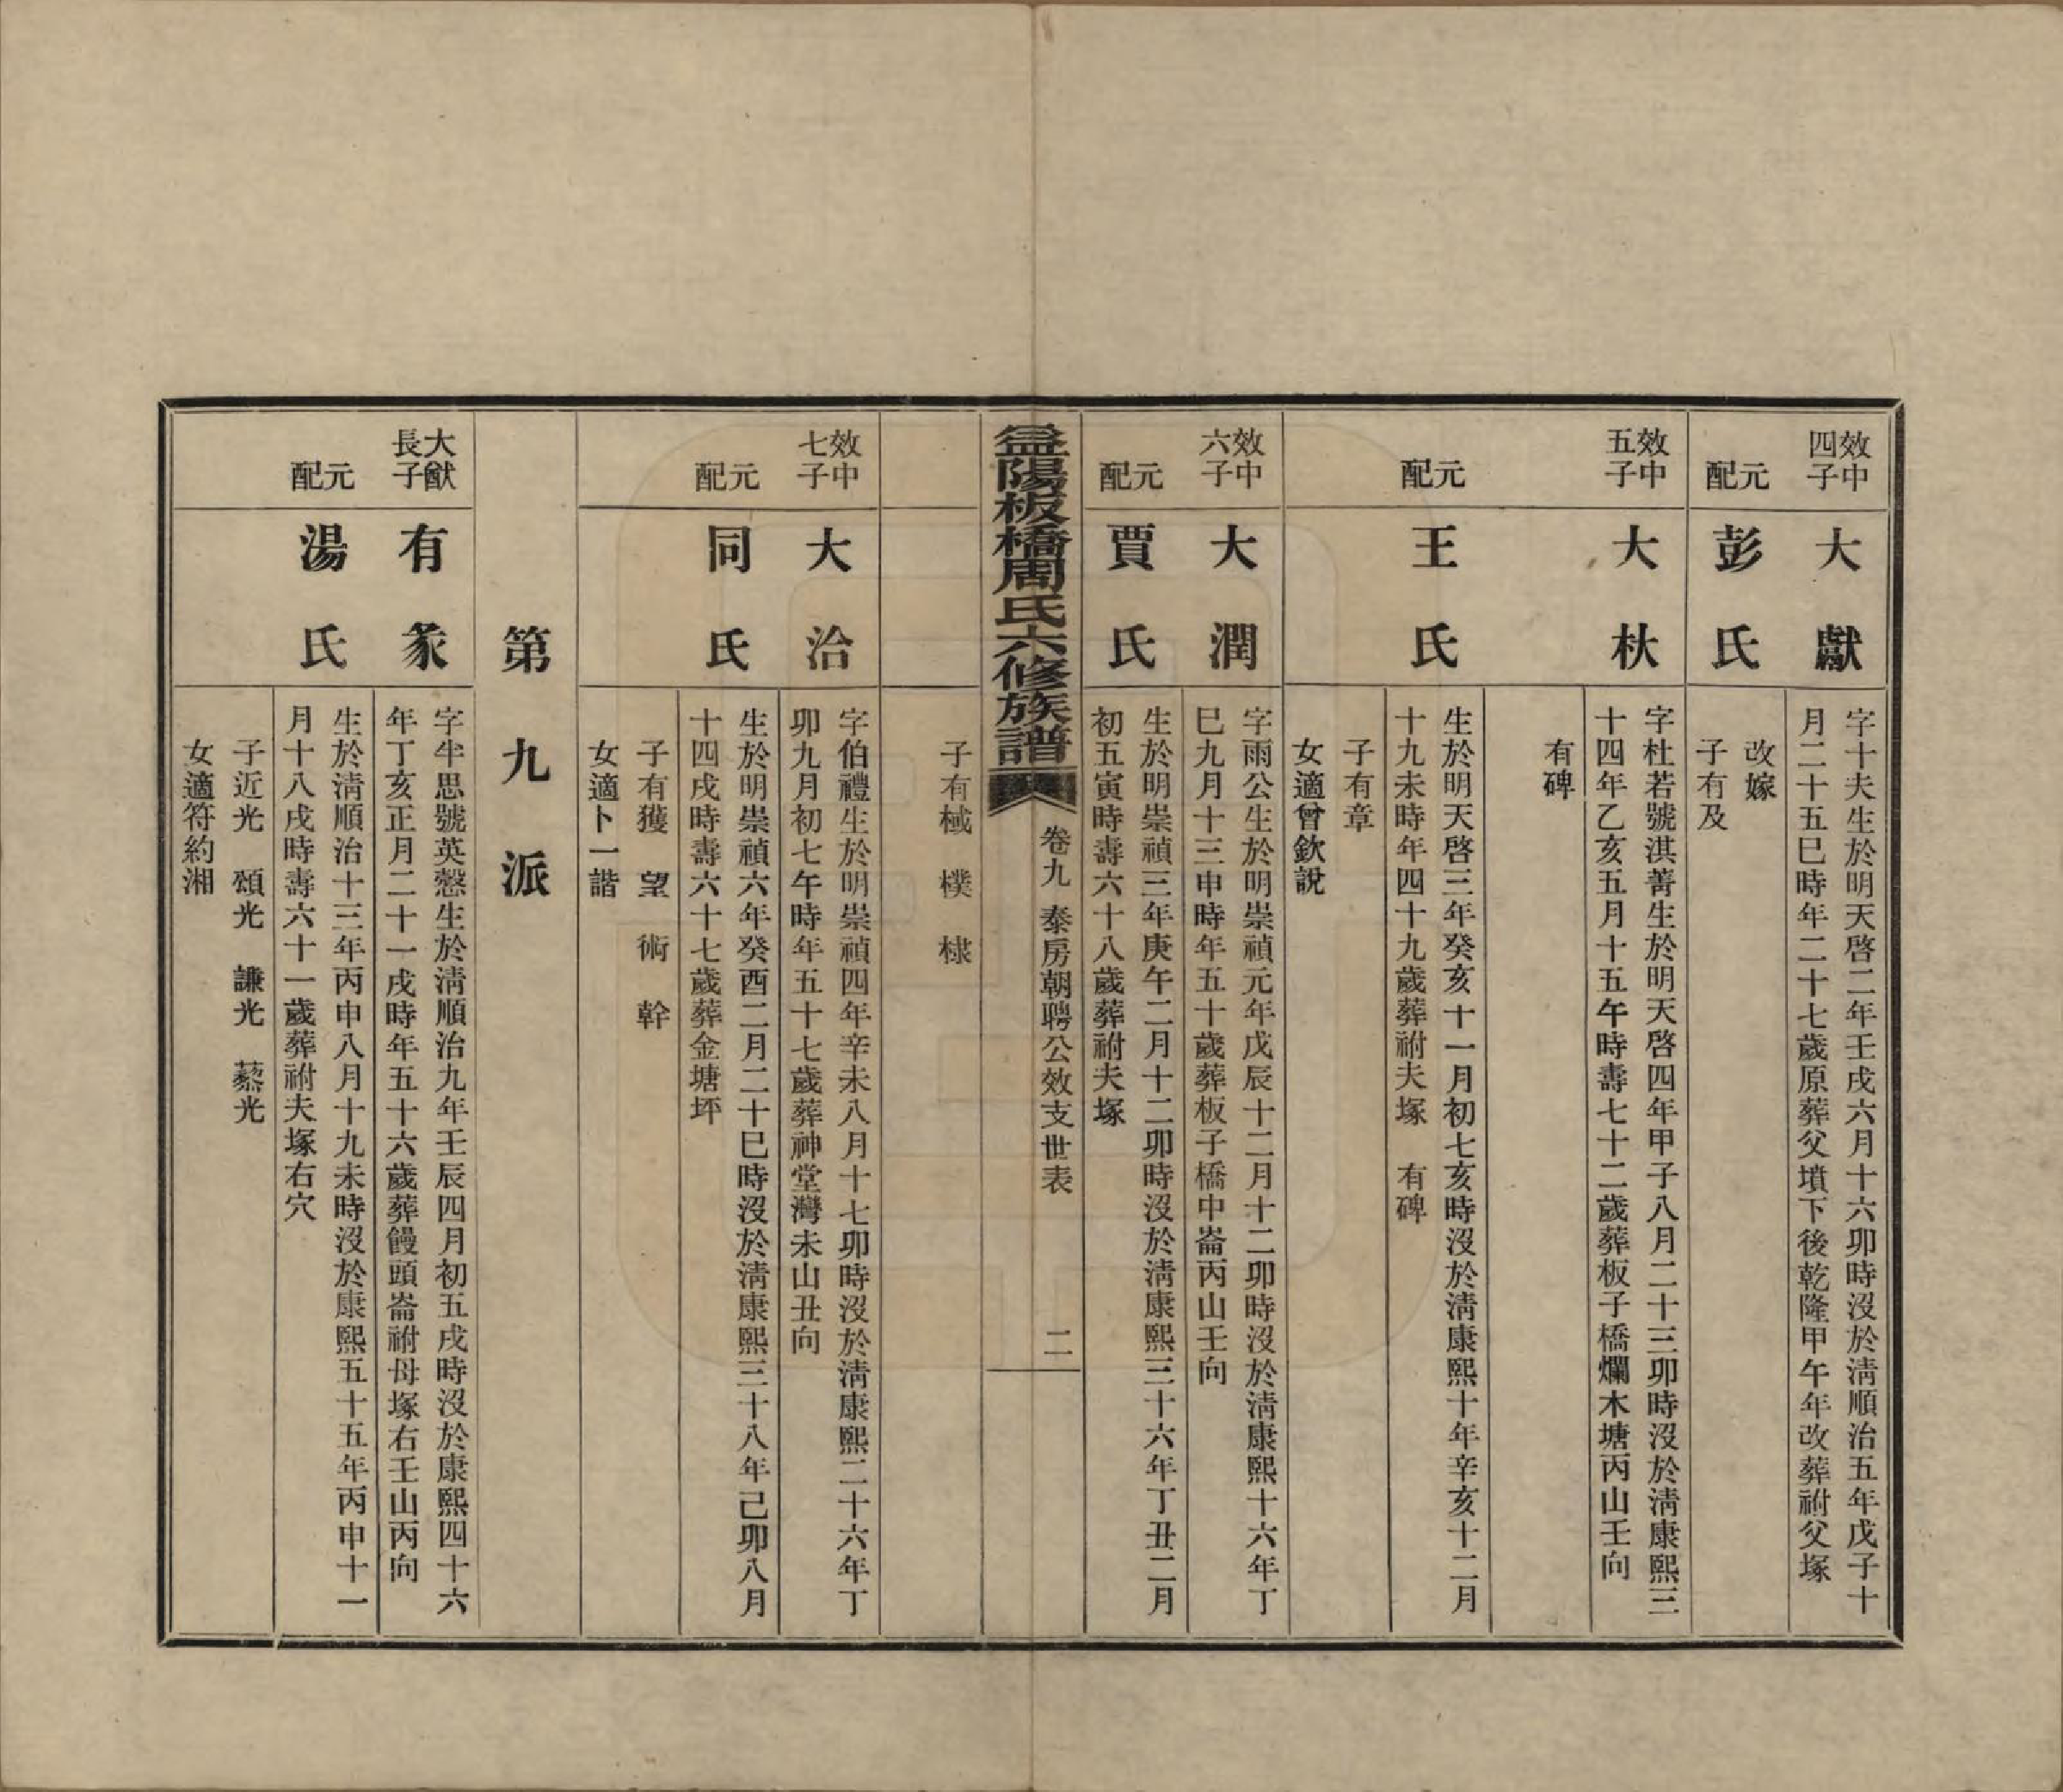 效中
四子
大獻
字十夫生於明天啓二年壬戌六月十六卯時沒於淸順治五年戊子十
月二十五巳時年二十七歲原葬父墳下後乾隆甲午年改葬祔父塚
元配
彭氏
改嫁
子有及
效中
五子
大杕
字杜若號淇菁生於明天啓四年甲子八月二十三卯時沒於淸康熙三
十四年乙亥五月十五午時壽七十二歲葬板子橋爛木塘丙山壬向
有碑
元配
王氏
生於明天啓三年癸亥十一月初七亥時沒於淸康熙十年辛亥十二月
十九未時年四十九歲葬祔夫塚　有碑
子有章
女適曾欽說
效中
六子
大潤
字雨公生於明崇禎元年戊辰十二月十二卯時沒於淸康熙十六年丁
巳九月十三申時年五十歲葬板子橋中崙丙山壬向
元配
賈氏
生於明崇禎三年庚午二月十二卯時沒於淸康熙三十六年丁丑二月
初五寅時壽六十八歲葬祔夫塚
益陽板橋周氏六修族譜
卷九　泰房朝聘公效支世表
二
子有棫　樸　棣
效中
七子
大治
字伯禮生於明崇禎四年辛未八月十七卯時沒於淸康熙二十六年丁
卯九月初七午時年五十七歲葬神堂灣未山丑向
元配
同氏
生於明崇禎六年癸酉二月二十巳時沒於淸康熙三十八年己卯八月
十四戌時壽六十七歲葬金塘坪
子有獲　望　術　幹
女適卜一諧
第九派
大猷
長子
有豖
字半思號英慤生於淸順治九年壬辰四月初五戌時沒於康熙四十六
年丁亥正月二十一戌時年五十六歲葬饅頭崙祔母塚右壬山丙向
元配
湯氏
生於淸順治十三年丙申八月十九未時沒於康熙五十五年丙申十一
月十八戌時壽六十一歲葬祔夫塚右穴
子近光　頌光　謙光　藜光
女適符約湘